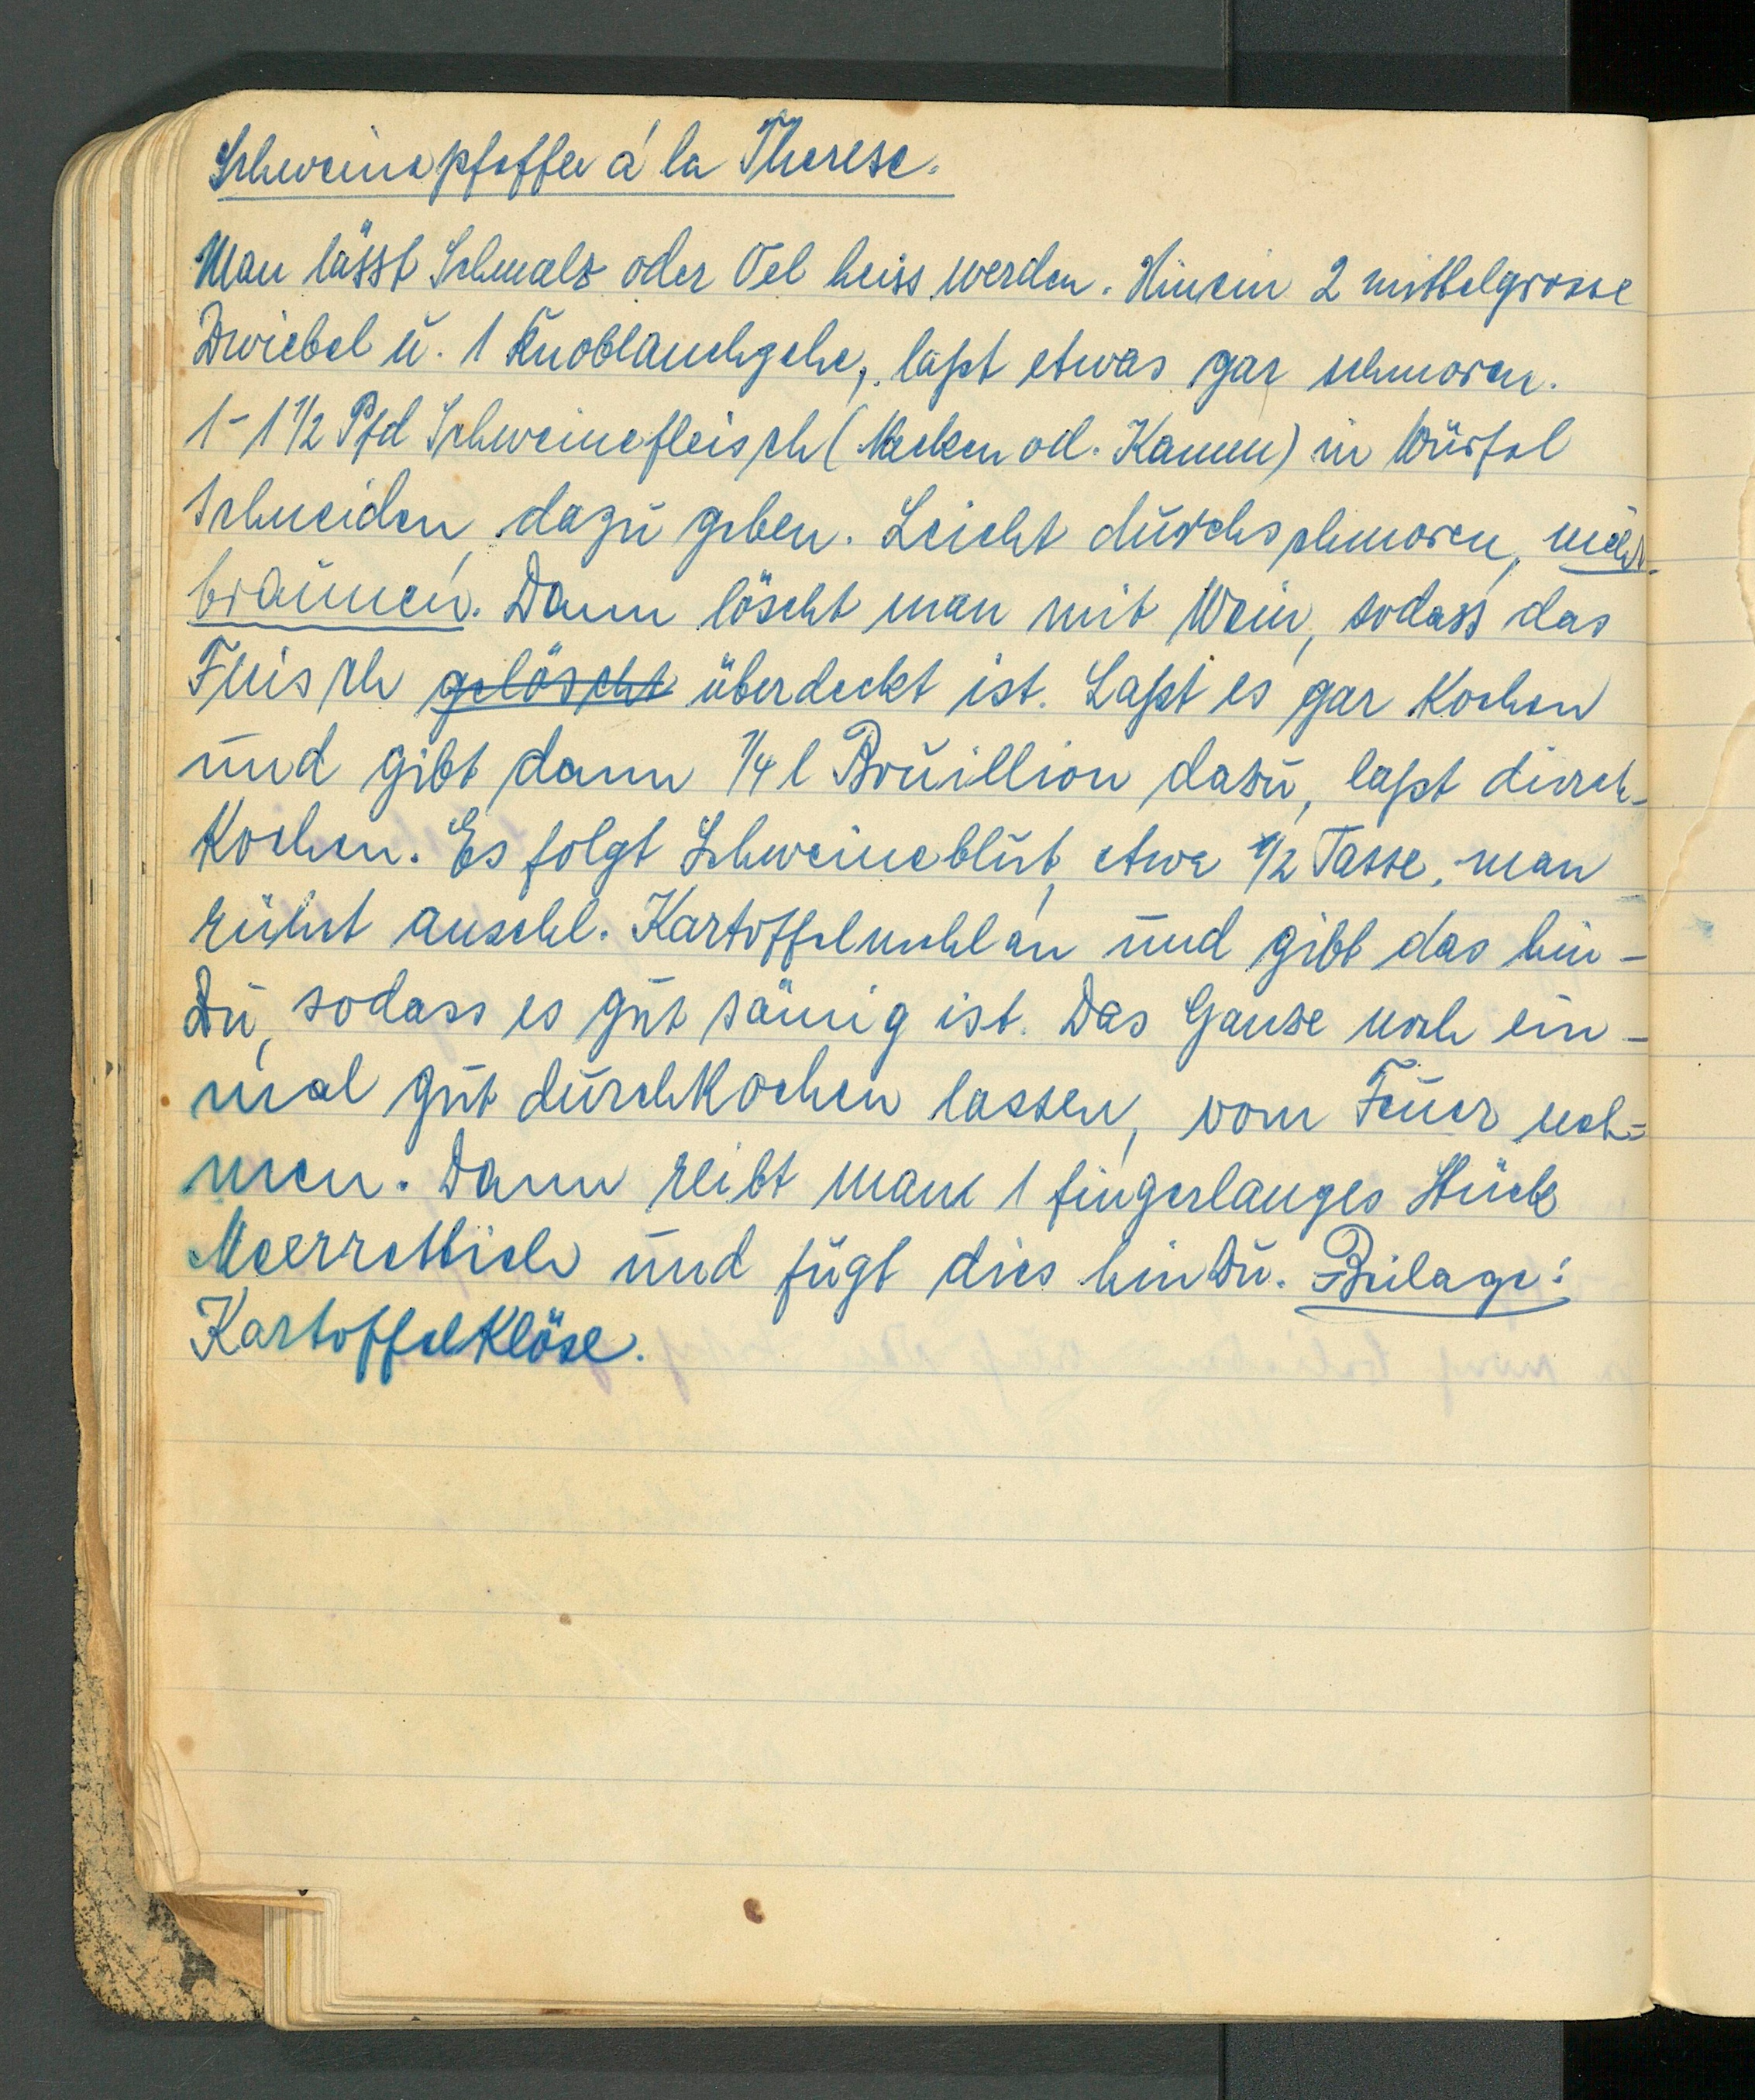 Schweinepfeffer á la Therese.
Man lässt Schmalz oder Oel heiss werden. Hinein 2 mittelgrosse
Zwiebel u. 1 Knoblauchzehe, laßt etwas gar schmoren.
1-1½ Pfd Schweinefleisch (Nacken od. Kamm) in Würfel
schneiden, dazu geben. Leicht durchschmoren, nicht
bräunen. Dann löscht man mit Wein, sodass das
Fleisch gelöscht überdeckt ist. Laßt es gar kochen
und gibt dann ¼ l Bouillion dazu, laßt durch-
kochen. Es folgt Schweineblut, etwa ½ Tasse, man
rührt anschl. Kartoffelmehl an und gibt das hin-
zu, sodass es gut sämig ist. Das Ganze noch ein-
mal gut durchkochen lassen, vom Feuer neh=
men. Dann reibt man 1 fingerlanges Stück
Meerrettich und fügt dies hinzu. Beilage:
Kartoffelklöse.